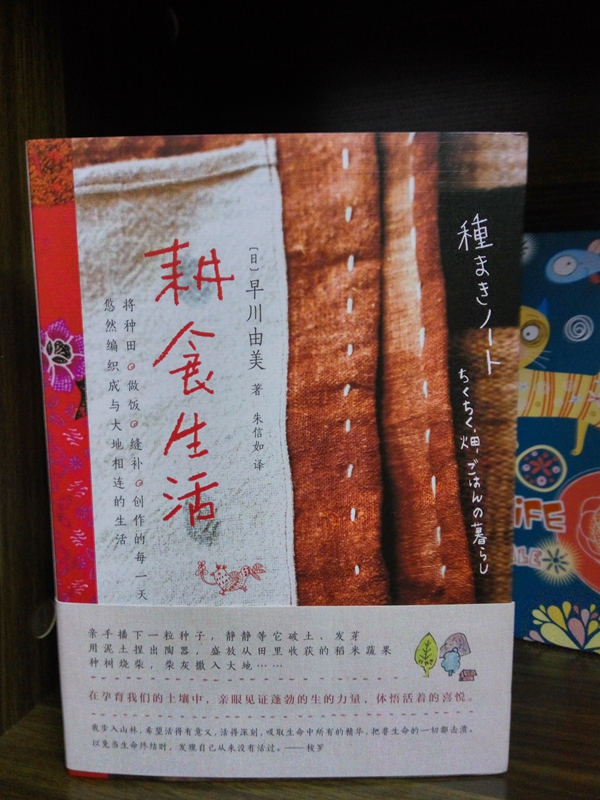 耕食生活
[日]早川由美 著 朱信如 译
将种田 做饭 缝补 创作的每一天
悠然编织成与大地相连的生活
種まきノート
ちくちく、畑、ごはんの暮らし
亲手播下一粒种子，静静等它破土、发芽
用泥土捏出陶器，盛放从田里收获的稻米蔬果
种树烧柴，柴灰撒入大地……
在孕育我们的土壤中，亲眼见证蓬勃的生的力量，体悟活着的喜悦。
我步入山林，希望活得有意义，活得深刻，吸取生命中所有的精华，把非生命的一切都击溃。
以免当生命终结时，发现自己从来没有活过。——梭罗
iFE